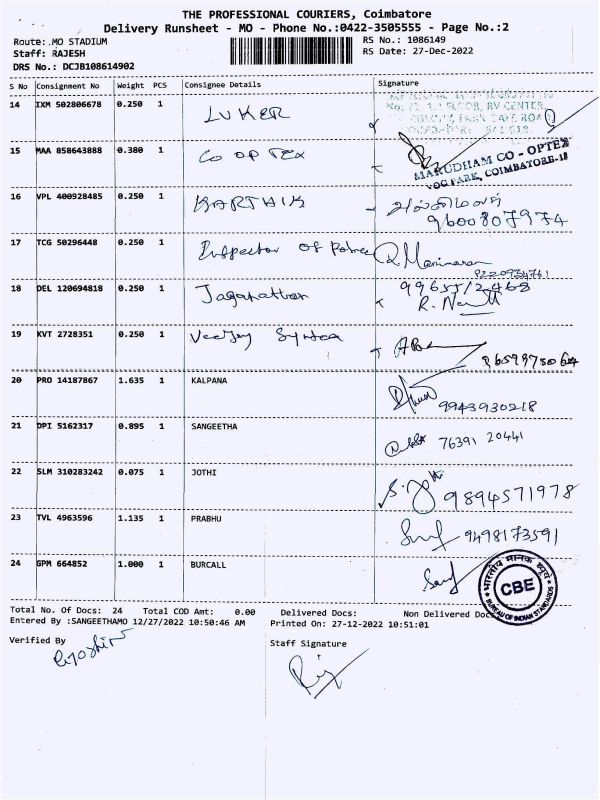 THE PROFESSIONAL COURIERS, Coimbatore
Delivery Runsheet - MO - Phone No.:0422-3505555 - Page No.:2
Route: MO STADIUM
RS No.: 1086149
Staff: RAJESH
RS Date: 27-Dec-2022
DRS No.: DCJB108614902
S No Consignment No Weight PCS Consignee Details Signature
14 IXM 502806678 0.250 1 LUKER
RV CENTER,
15 MAA 858643888 0.380 1 CO OP TEX
MARUDHAM CO - OPTEX
VOC PARK, COIMBATORE-18
16 VPL 400928485 0.250 1 KARTHIK
9600807974
17 TCG 50296448 0.250 1 Inspector Of Police
18 DEL 120694818 0.250 1 Jaganathan
9965512468
19 KVT 2728351 0.250 1 Veejay Syntex
20 PRO 14187867 1.635 1 KALPANA
9943930218
21 DPI 5162317 0.895 1 SANGEETHA
76391 20441
22 SLM 310283242 0.075 1 JOTHI
9894571978
23 TVL 4963596 1.135 1 PRABHU
9498173591
24 GPM 664852 1.000 1 BURCALL
भारतीय मानक ब्यूरो
CBE
BUREAU OF INDIAN STANDARDS
Total No. Of Docs: 24 Total COD Amt: 0.00 Delivered Docs: Non Delivered Docs
Entered By :SANGEETHAMO 12/27/2022 10:50:46 AM Printed On: 27-12-2022 10:51:01
Verified By
Staff Signature